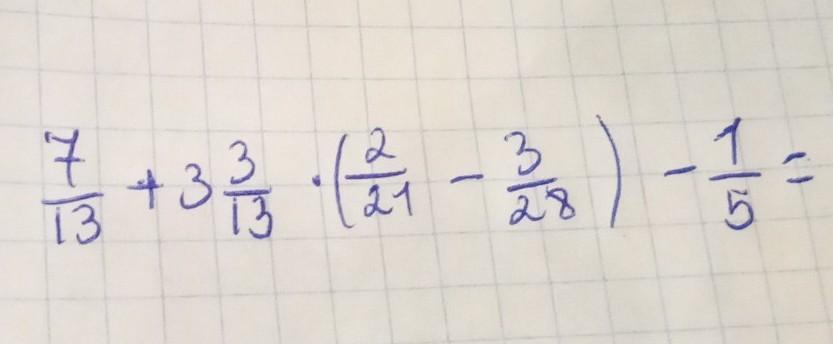 7/13 + 3 3/13 · (2/21 - 3/28) - 1/5 =